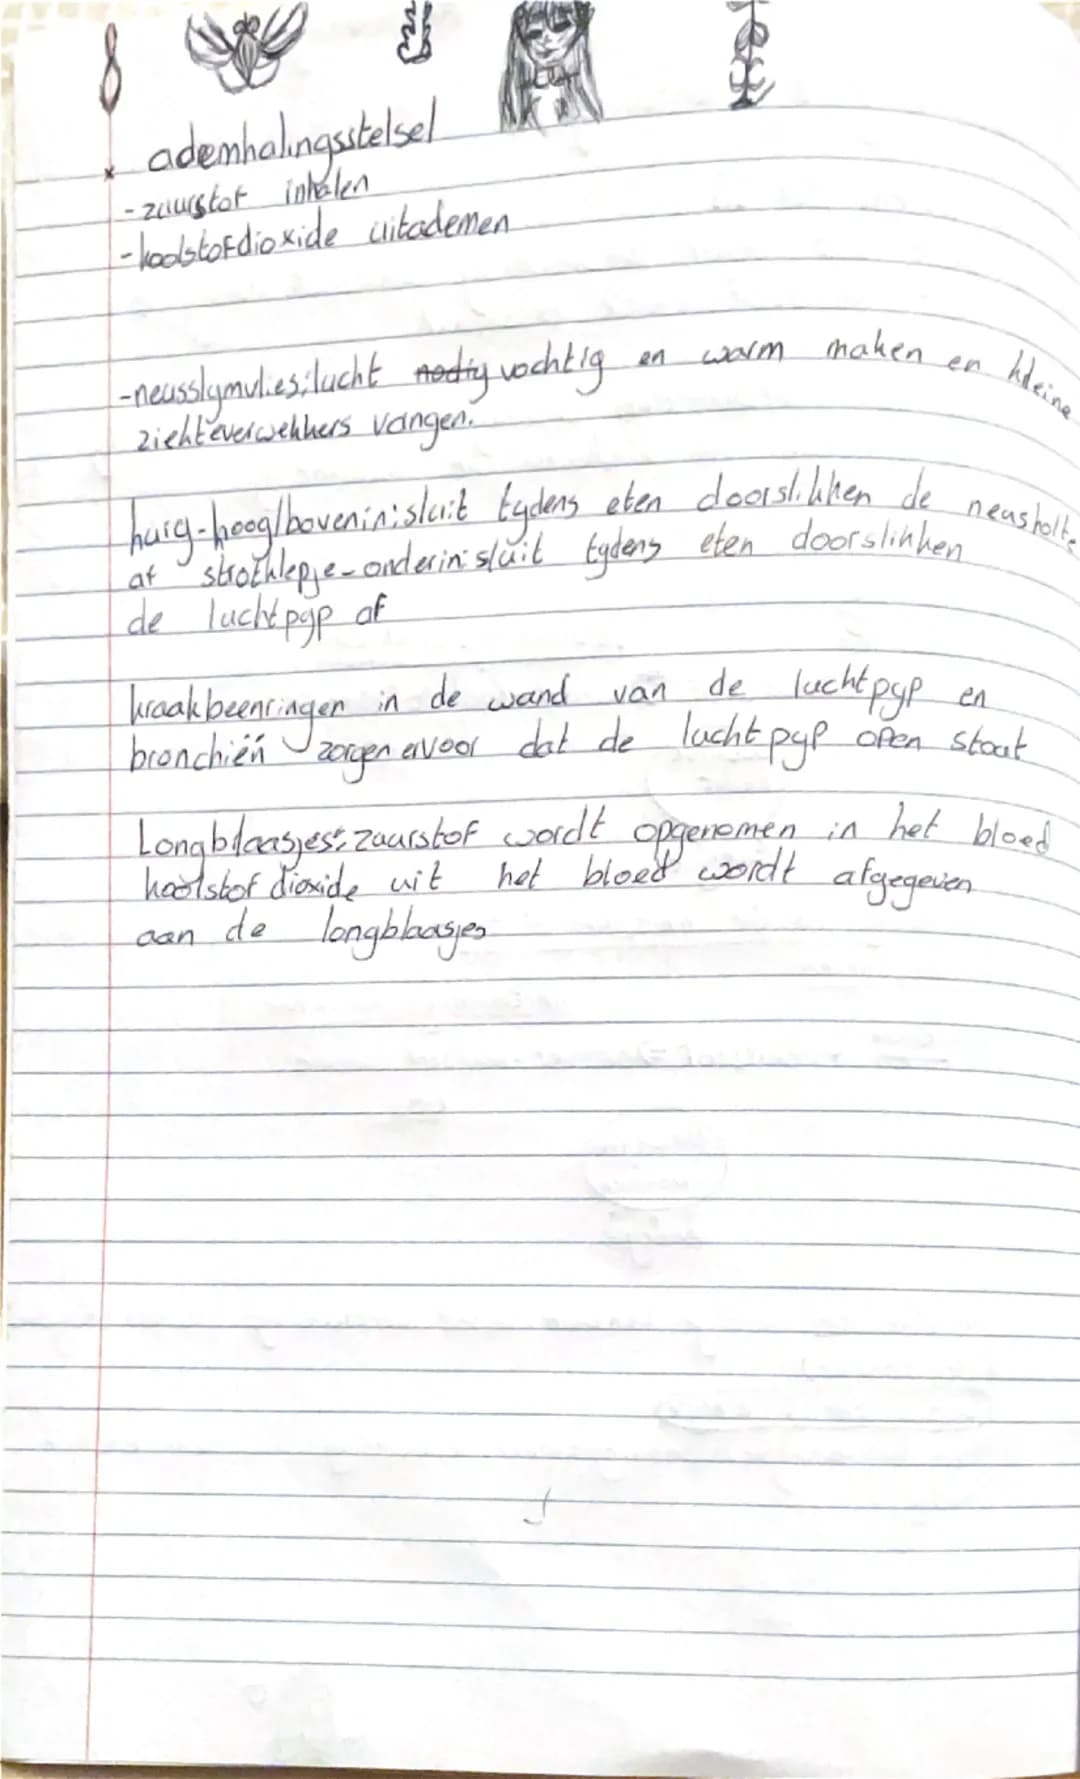 ademhalingsstelsel
-zuurstof inhalen
-koolstofdioxide uitademen
-neusslymvlies: lucht nodig vochtig en warm maken en kleine
ziekteverwekkers vangen.
huig-hoog/bovenin: sluit tydens eten doorslikken de neusholte
af strotklepje-onderin: sluit tydens eten doorslikken
de luchtpyp af
kraakbeenringen in de wand van de luchtpyp en
bronchiën zorgen ervoor dat de luchtpyp open staat
Longblaasjes: zuurstof wordt opgenomen in het bloed
koolstof dioxide uit het bloed wordt afgegeven
aan de longblaasjes